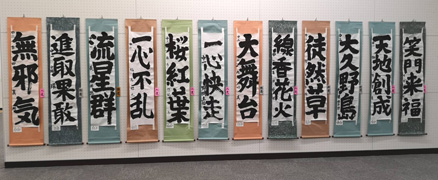 無邪気
進取果敢
流星群
一心不乱
桜紅葉
一心快走
大舞台
線香花火
徒然草
大久野島
天地創成
笑門来福